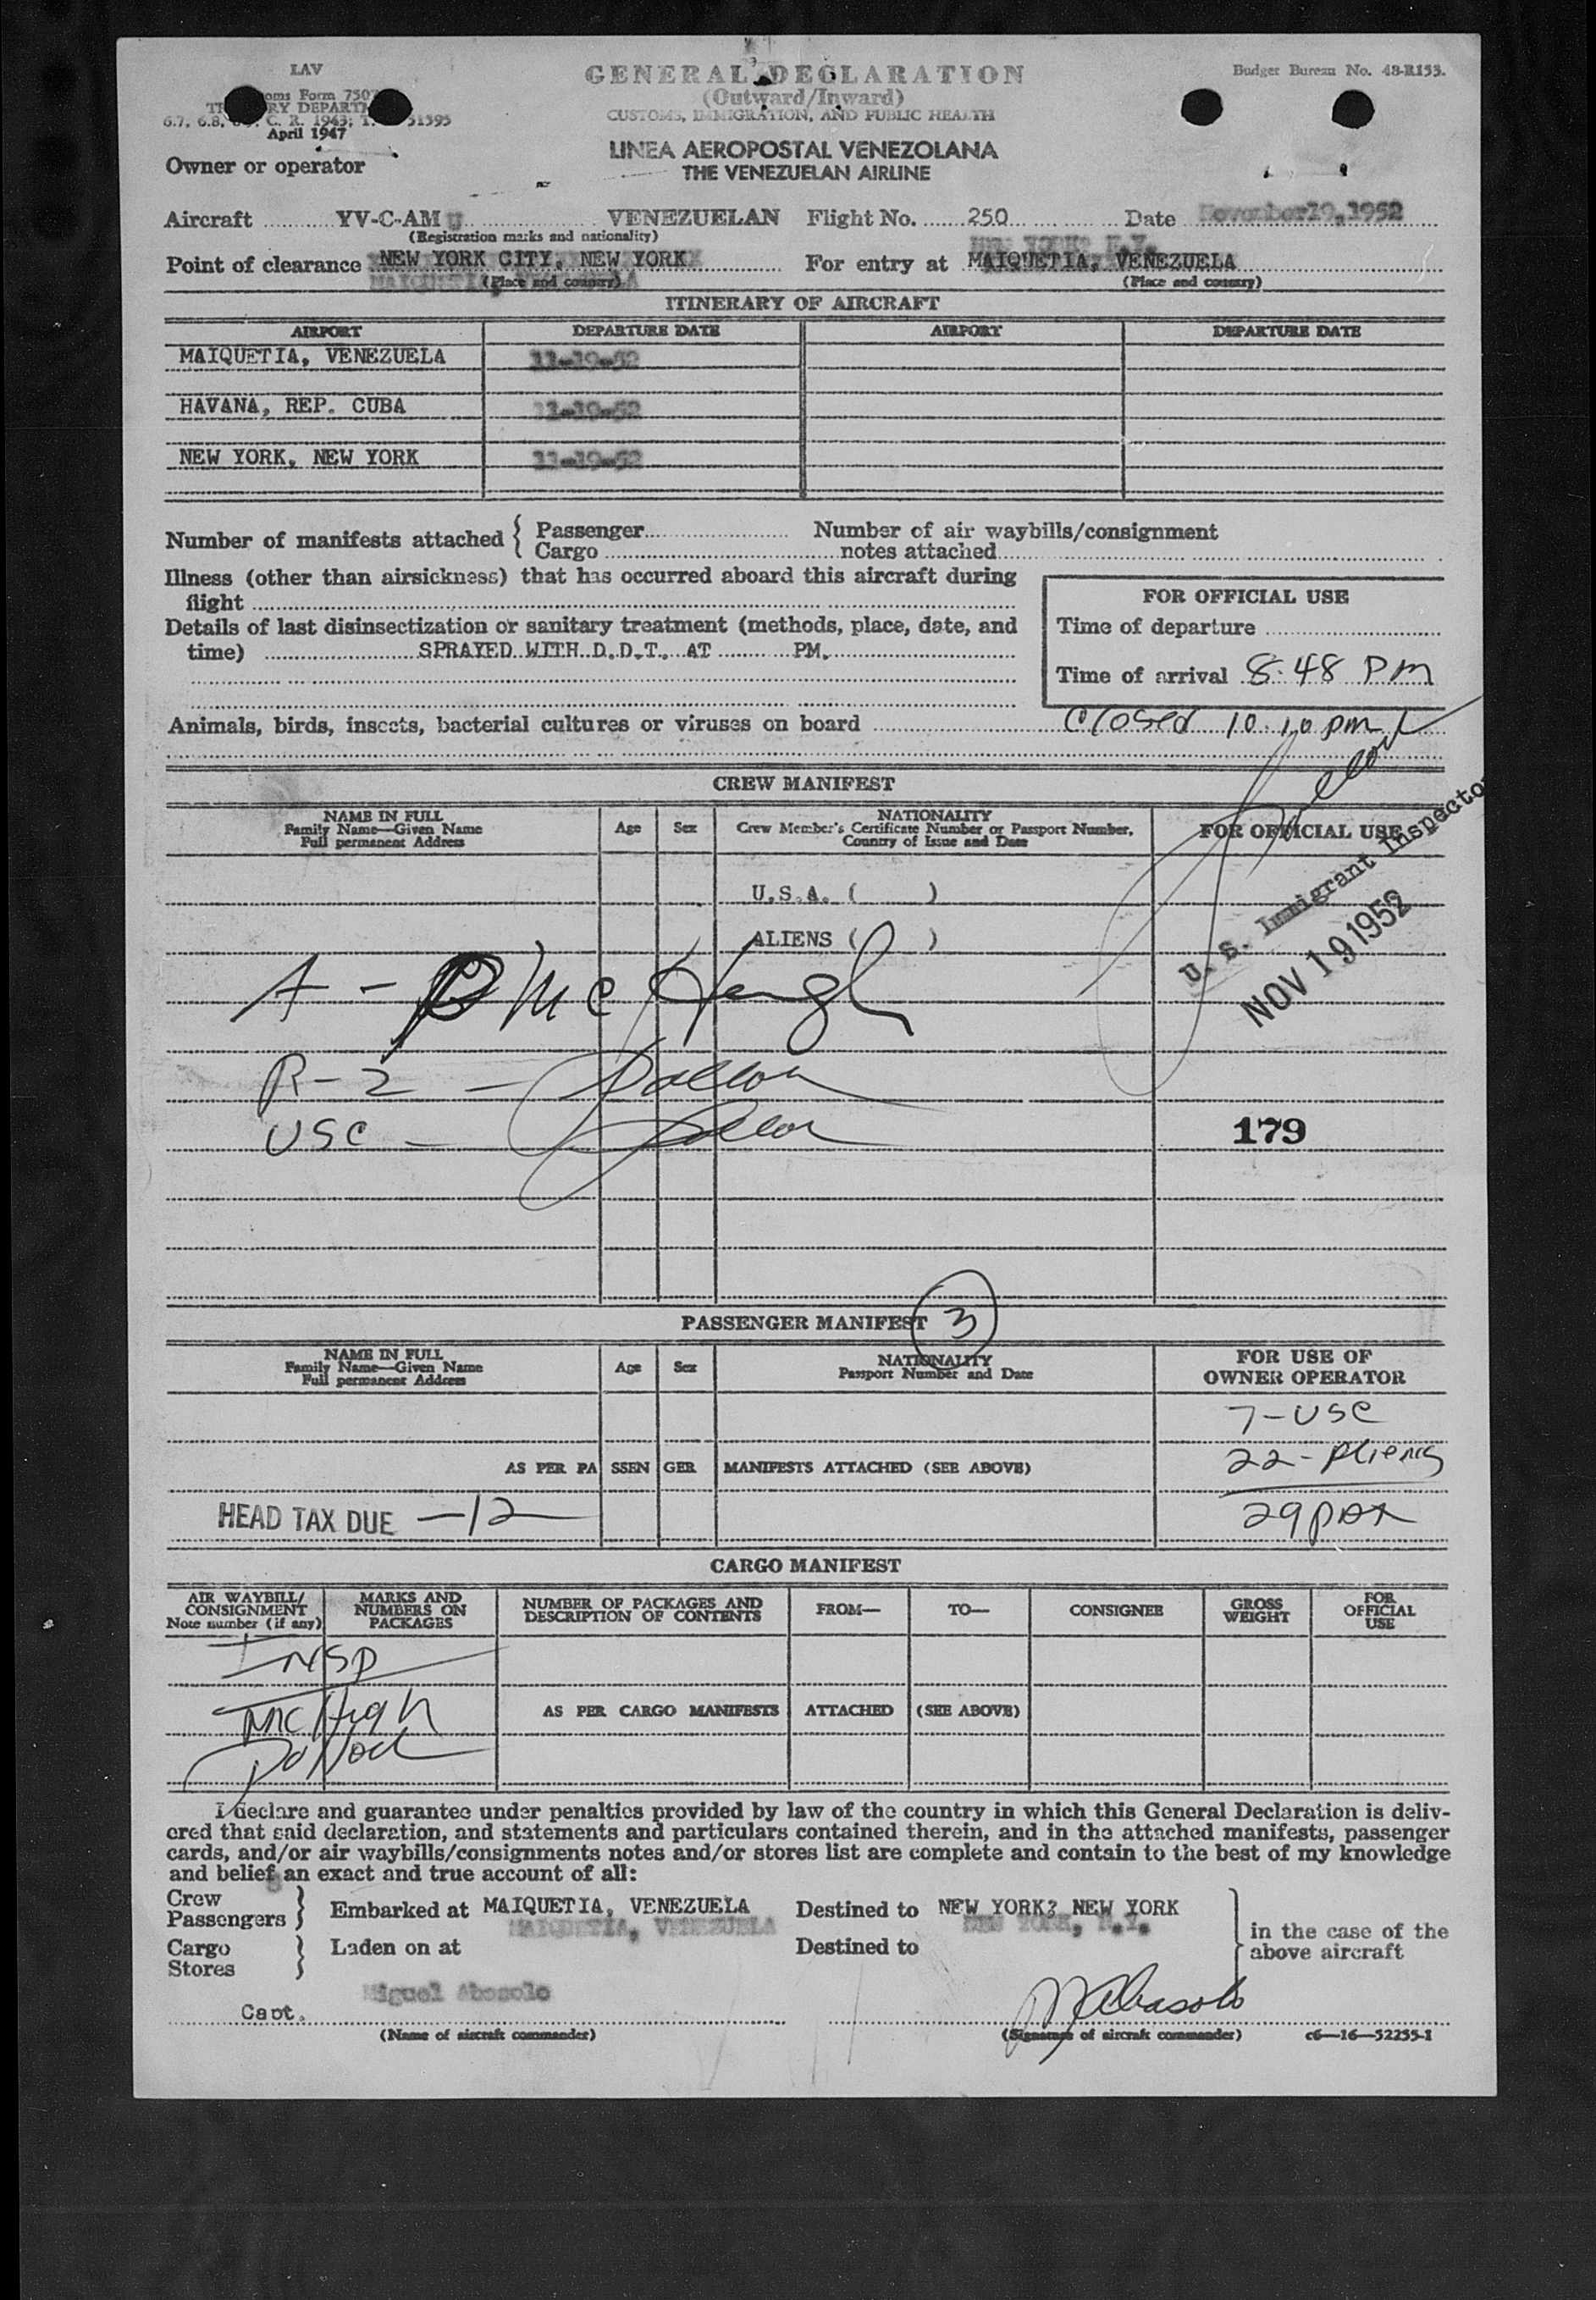 LAV
GENERAL DECLARATION
Budget Bureau No. 48-R153.
(Outward/Inward)
CUSTOMS, IMMIGRATION, AND PUBLIC HEALTH
6.7, 6.8, C. R. 1943; T. 51395
April 1947
LINEA AEROPOSTAL VENEZOLANA
THE VENEZUELAN AIRLINE
Owner or operator
Aircraft YV-C-AM U VENEZUELAN Flight No. 250 Date November 19, 1952
(Registration marks and nationality)
NEW YORK, N.Y.
Point of clearance NEW YORK CITY, NEW YORK For entry at MAIQUETIA, VENEZUELA
MAIQUETIA, (Place and country) (Place and country)
ITINERARY OF AIRCRAFT
AIRPORT DEPARTURE DATE AIRPORT DEPARTURE DATE
MAIQUETIA, VENEZUELA 11-19-52
HAVANA, REP. CUBA 11-19-52
NEW YORK, NEW YORK 11-19-52
Number of manifests attached { Passenger Number of air waybills/consignment
Cargo notes attached
Illness (other than airsickness) that has occurred aboard this aircraft during
flight
FOR OFFICIAL USE
Details of last disinsectization or sanitary treatment (methods, place, date, and
Time of departure
time) SPRAYED WITH D.D.T. AT PM.
Time of arrival 8:48 PM
Animals, birds, insects, bacterial cultures or viruses on board closed 10.10 pm
CREW MANIFEST
NAME IN FULL
Family Name—Given Name
Full permanent Address
Age Sex
NATIONALITY
Crew Member's Certificate Number or Passport Number,
Country of Issue and Date
FOR OFFICIAL USE
U.S.A. ( )
ALIENS ( )
U. S. Immigrant Inspector
NOV 19 1952
A - McHugh
R-2 -
USC -
179
PASSENGER MANIFEST 3
NAME IN FULL
Family Name—Given Name
Full permanent Address
Age Sex
NATIONALITY
Passport Number and Date
FOR USE OF
OWNER OPERATOR
7-USC
AS PER PASSENGER MANIFESTS ATTACHED (SEE ABOVE) 22-Aliens
HEAD TAX DUE -12 29 pax
CARGO MANIFEST
AIR WAYBILL/
CONSIGNMENT
Note number (if any)
MARKS AND
NUMBERS ON
PACKAGES
NUMBER OF PACKAGES AND
DESCRIPTION OF CONTENTS
FROM— TO— CONSIGNEE
GROSS
WEIGHT
FOR
OFFICIAL
USE
INSP
McHugh
AS PER CARGO MANIFESTS ATTACHED (SEE ABOVE)
Pollock
I declare and guarantee under penalties provided by law of the country in which this General Declaration is deliv-
ered that said declaration, and statements and particulars contained therein, and in the attached manifests, passenger
cards, and/or air waybills/consignments notes and/or stores list are complete and contain to the best of my knowledge
and belief an exact and true account of all:
Crew
Passengers } Embarked at MAIQUETIA, VENEZUELA Destined to NEW YORK? NEW YORK
MAIQUETIA, VENEZUELA NEW YORK, N.Y.
in the case of the
above aircraft
Cargo
Stores } Laden on at Destined to
Miguel Abasolo
Capt. MAbasolo
(Name of aircraft commander) (Signature of aircraft commander) c6—16—52255-1